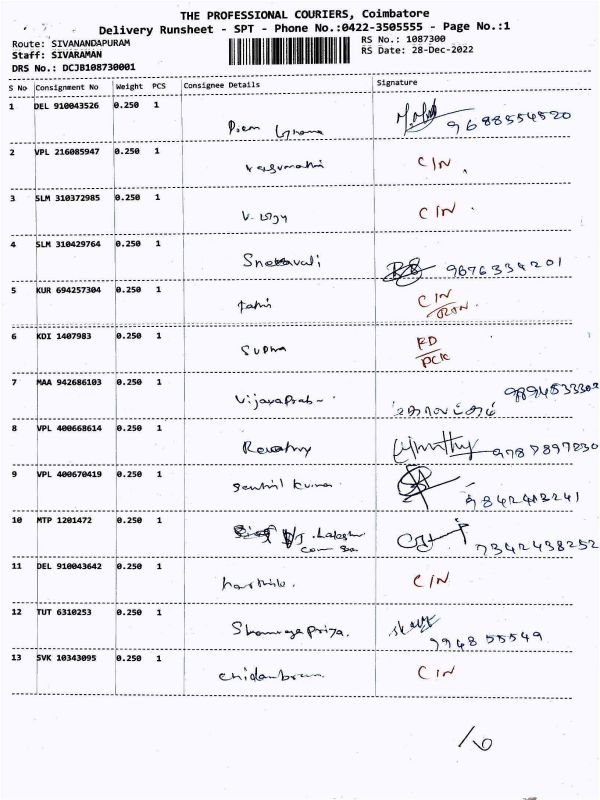 THE PROFESSIONAL COURIERS, Coimbatore
Delivery Runsheet - SPT - Phone No.:0422-3505555 - Page No.:1
Route: SIVANANDAPURAM
Staff: SIVARAMAN
DRS No.: DCJB108730001
RS No.: 1087300
RS Date: 28-Dec-2022
S No Consignment No Weight PCS Consignee Details Signature
1 DEL 910043526 0.250 1
9688554520
2 VPL 216085947 0.250 1 C/N
3 SLM 310372985 0.250 1 C/N
4 SLM 310429764 0.250 1
9876334201
5 KUR 694257304 0.250 1 C/N
6 KDI 1407983 0.250 1 Supna
7 MAA 942686103 0.250 1
8 VPL 400668614 0.250 1 Revathy
9787897230
9 VPL 400670419 0.250 1 Senthil Kumar
9842413241
10 MTP 1201472 0.250 1
7342438252
11 DEL 910043642 0.250 1 C/N
12 TUT 6310253 0.250 1 Shanmugapriya.
994855549
13 SVK 10343095 0.250 1 Chidambram C/N